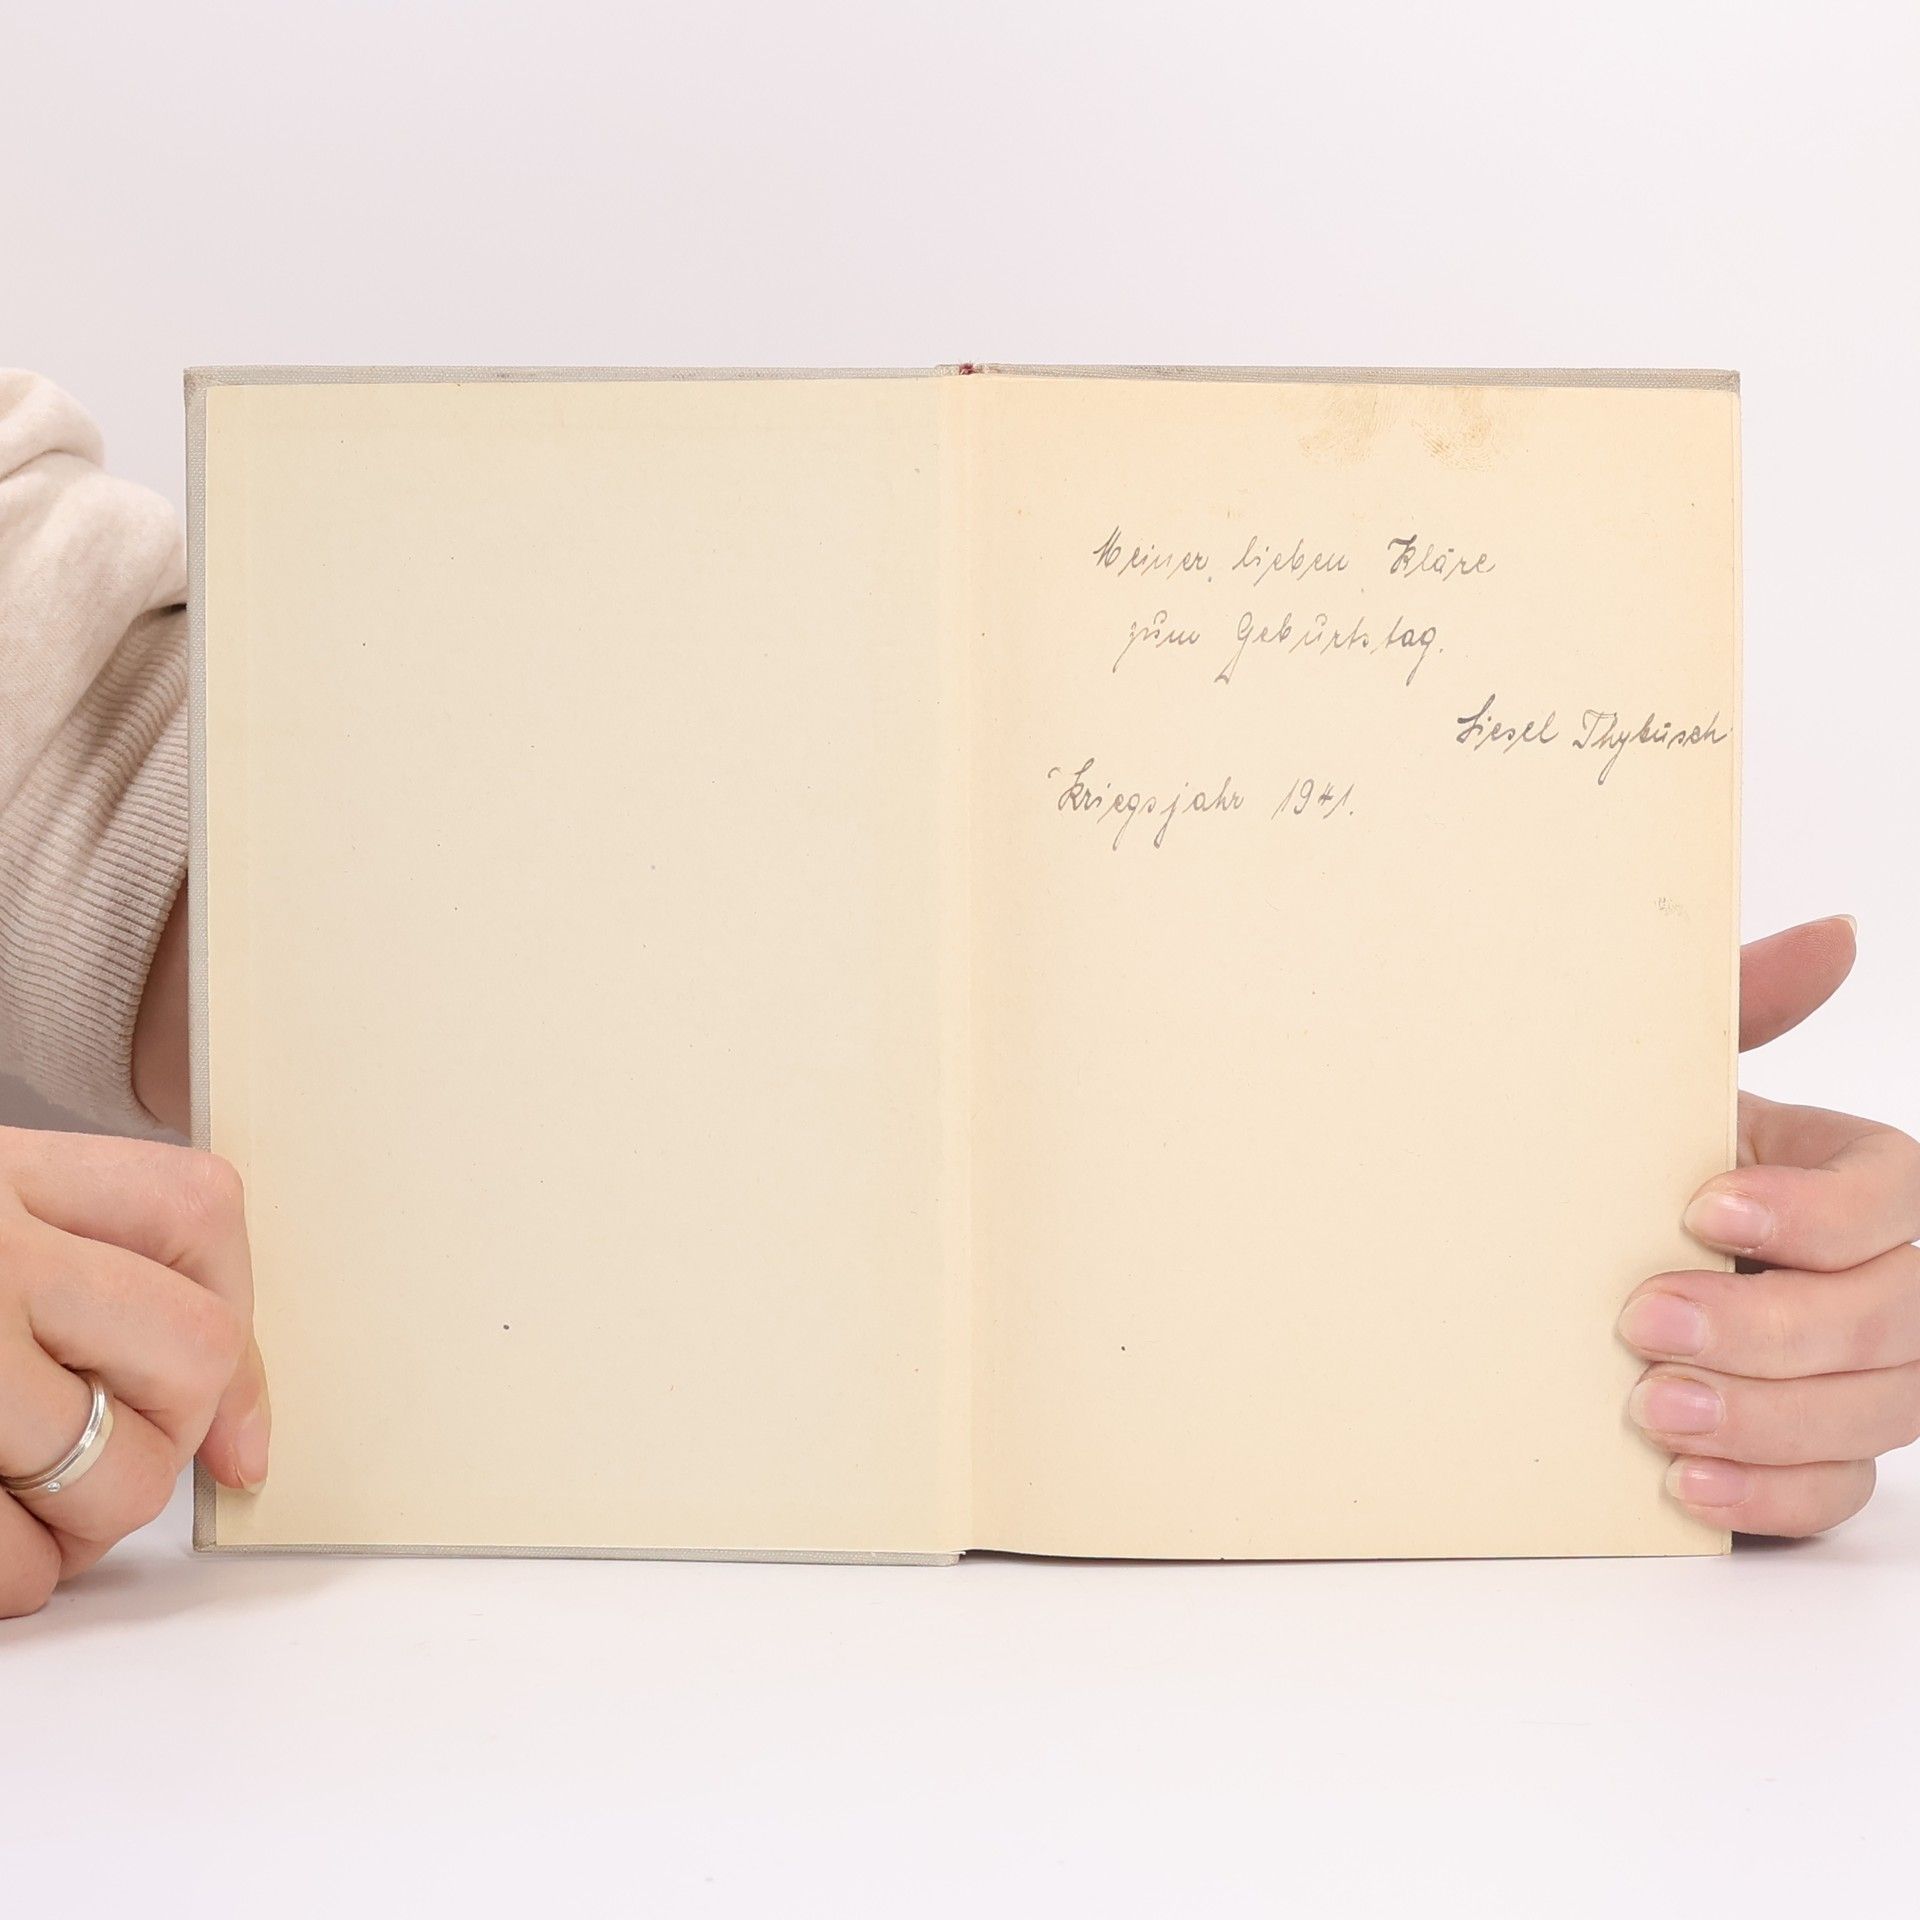 Meiner lieben Kläre
zum Geburtstag.
Liesel Thybusch
Kriegsjahr 1941.